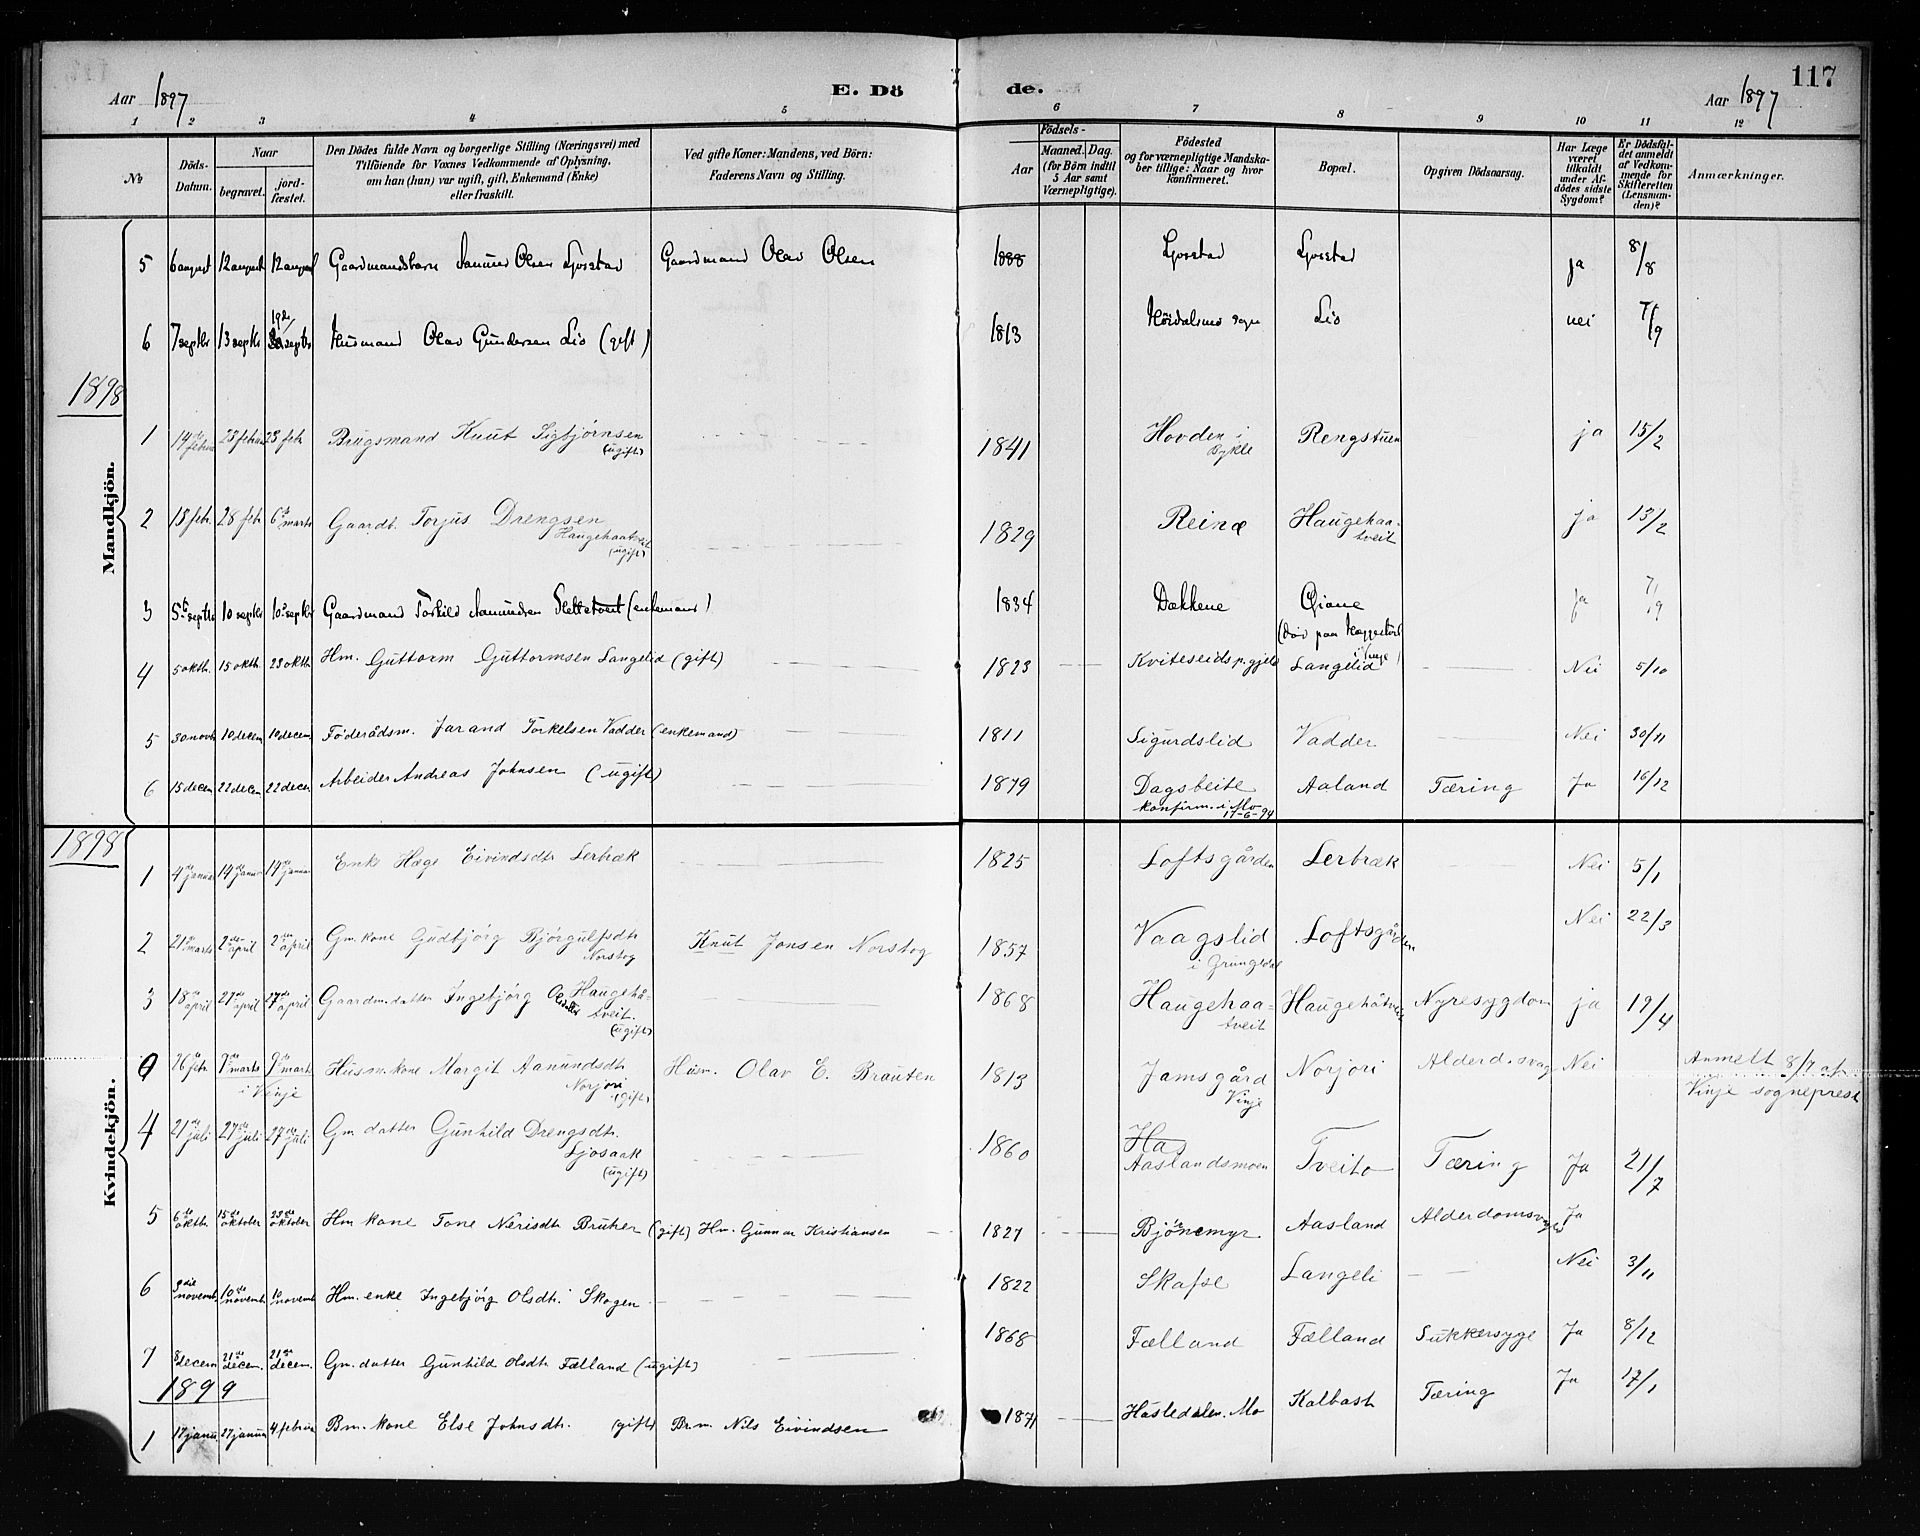 Aar 1897 E. Dö de. Aar 1897 117
1 2 3 4 5 6 7 8 9 10 11 12
No
Döds-Datum.
Naar
begravet.
jord-fæstet.
Den Dödes fulde Navn og borgerlige Stilling (Næringsvei) med
Tilföiende for Voxnes Vedkommende af Oplysning,
om han (hun) var ugift, gift, Enkemand (Enke)
eller fraskilt.
Ved gifte Koner: Mandens, ved Börn:
Faderens Navn og Stilling.
Födsels-
Aar
Maaned. Dag.
(for Börn indtil
5 Aar samt
Værnepligtige).
Födested
og for værnepligtige Mandska-
ber tillige: Naar og hvor
konfirmeret.
Bopæl.
Opgiven Dödsaarsag.
Har Læge
været
tilkaldt
under Af-
dödes sidste
Sygdom?
Er Dödsfal-
det anmeldt
af Vedkom-
mende for
Skifteretten
(Lensman-
den)?
Anmærkninger.
Mandkjön.
5 6 august 12 august 12 august Gaardmandsbarn Aanund Olsen Gaardmand Olav Olsen 1888 ja 8/8
6 7 septbr 13 septbr 19de septbr Husmand Olav Gundersen Lio (gift) 1813 Sogn Lio nei 7/9
1898
1 14de februar 23 februar 23 febr. Brugsmand Knut Sigbjørnsen (ugift) 1841 Hovden i Bykle Rengstuen ja 15/2
2 18 febr. 28 febr. 6te marts Gaardt. Torjus Drengsen Haugehaatveit (ugift) 1829 Reinæ Haugehaatveit ja 13/2
3 5te septbr 10 septbr 10 septbr Gaardmand Torkild Aanundsen (enkemand) 1834 Dækkene ja 7/9
4 5 oktb. 15 oktb. 23 oktb Hm. Guttorm Guttormsen Langelid (gift) 1823 Kviteseids p.gjeld Langelid Nei 5/10
5 30 novb. 10 decem 10 decem. Föderådsm. Jarand Torkelsen Vadder (enkemand) 1811 Sigurdslid Vadder Nei 30/11
6 15 decem 22 decem. 22 decem Arbeider Andreas Johnsen (ugift) 1879 Dagsbeite konfirm. i Mo 17-6-94 Aaland Tæring Ja 16/12
Kvindekjön.
1898
1 4de januar 14de januar 14de januar Enke Hæge Eivindsdtr Lerbræk 1825 Loftsgården Lerbræk Nei 5/1
2 21de marts 2den april 2den april Gm. kone Gudbjörg Björgulfsdtr Norstog Knut Jonsen Norstog 1857 Vaagslid i Grungedal Loftsgården Nei 22/3
3 18de april 27de april 27de april Gaardm. datter Ingebjörg Olsdatter Haugehåtveit. (ugift) 1868 Haugehaatveit Haugehåtveit Nyresygdom ja 19/4
26de febr. 9de marts 9de marts i Vinje Husm. kone Margit Aanundsdtr Norjori (gift) Husm. Olav E. Brauten 1813 Jamsgård Vinje Norjori Alderd.svag Nei Anmelt 8/7 af Vinje sogneprest
4 21de juli 27de juli 27de juli Gm. datter Gunhild Drengsdtr. Ljosaak (ugift) 1860 Ha Aaslandsmoen Tveito Tæring Ja 21/7
5 6te oktb. 15de oktober 23de oktober Hm. kone Tone Nerisdtr Bruher (gift) Hm. Gunnar Kristiansen 1827 Björnemyr Aasland Alderdomsvag Ja
6 novemb. 10de novemb. 10 novemb Hm. enke Ingebjörg Olsdtr. Skogen 1822 Skafse Langeli Nei 3/11
7 8 decem 21de decem. 21de decem. Gm. datter Gunhild Olsdtr. Fælland (ugift) 1868 Fælland Fælland Sukkersyge Ja 8/12
1899
1 17 janu. 27 januar 4 februar Bm. kone Else Johnsdtr. (gift) Br.m. Nils Eivindsen 1871 Hasledalen. Mo Kalbash Tæring Ja 17/1